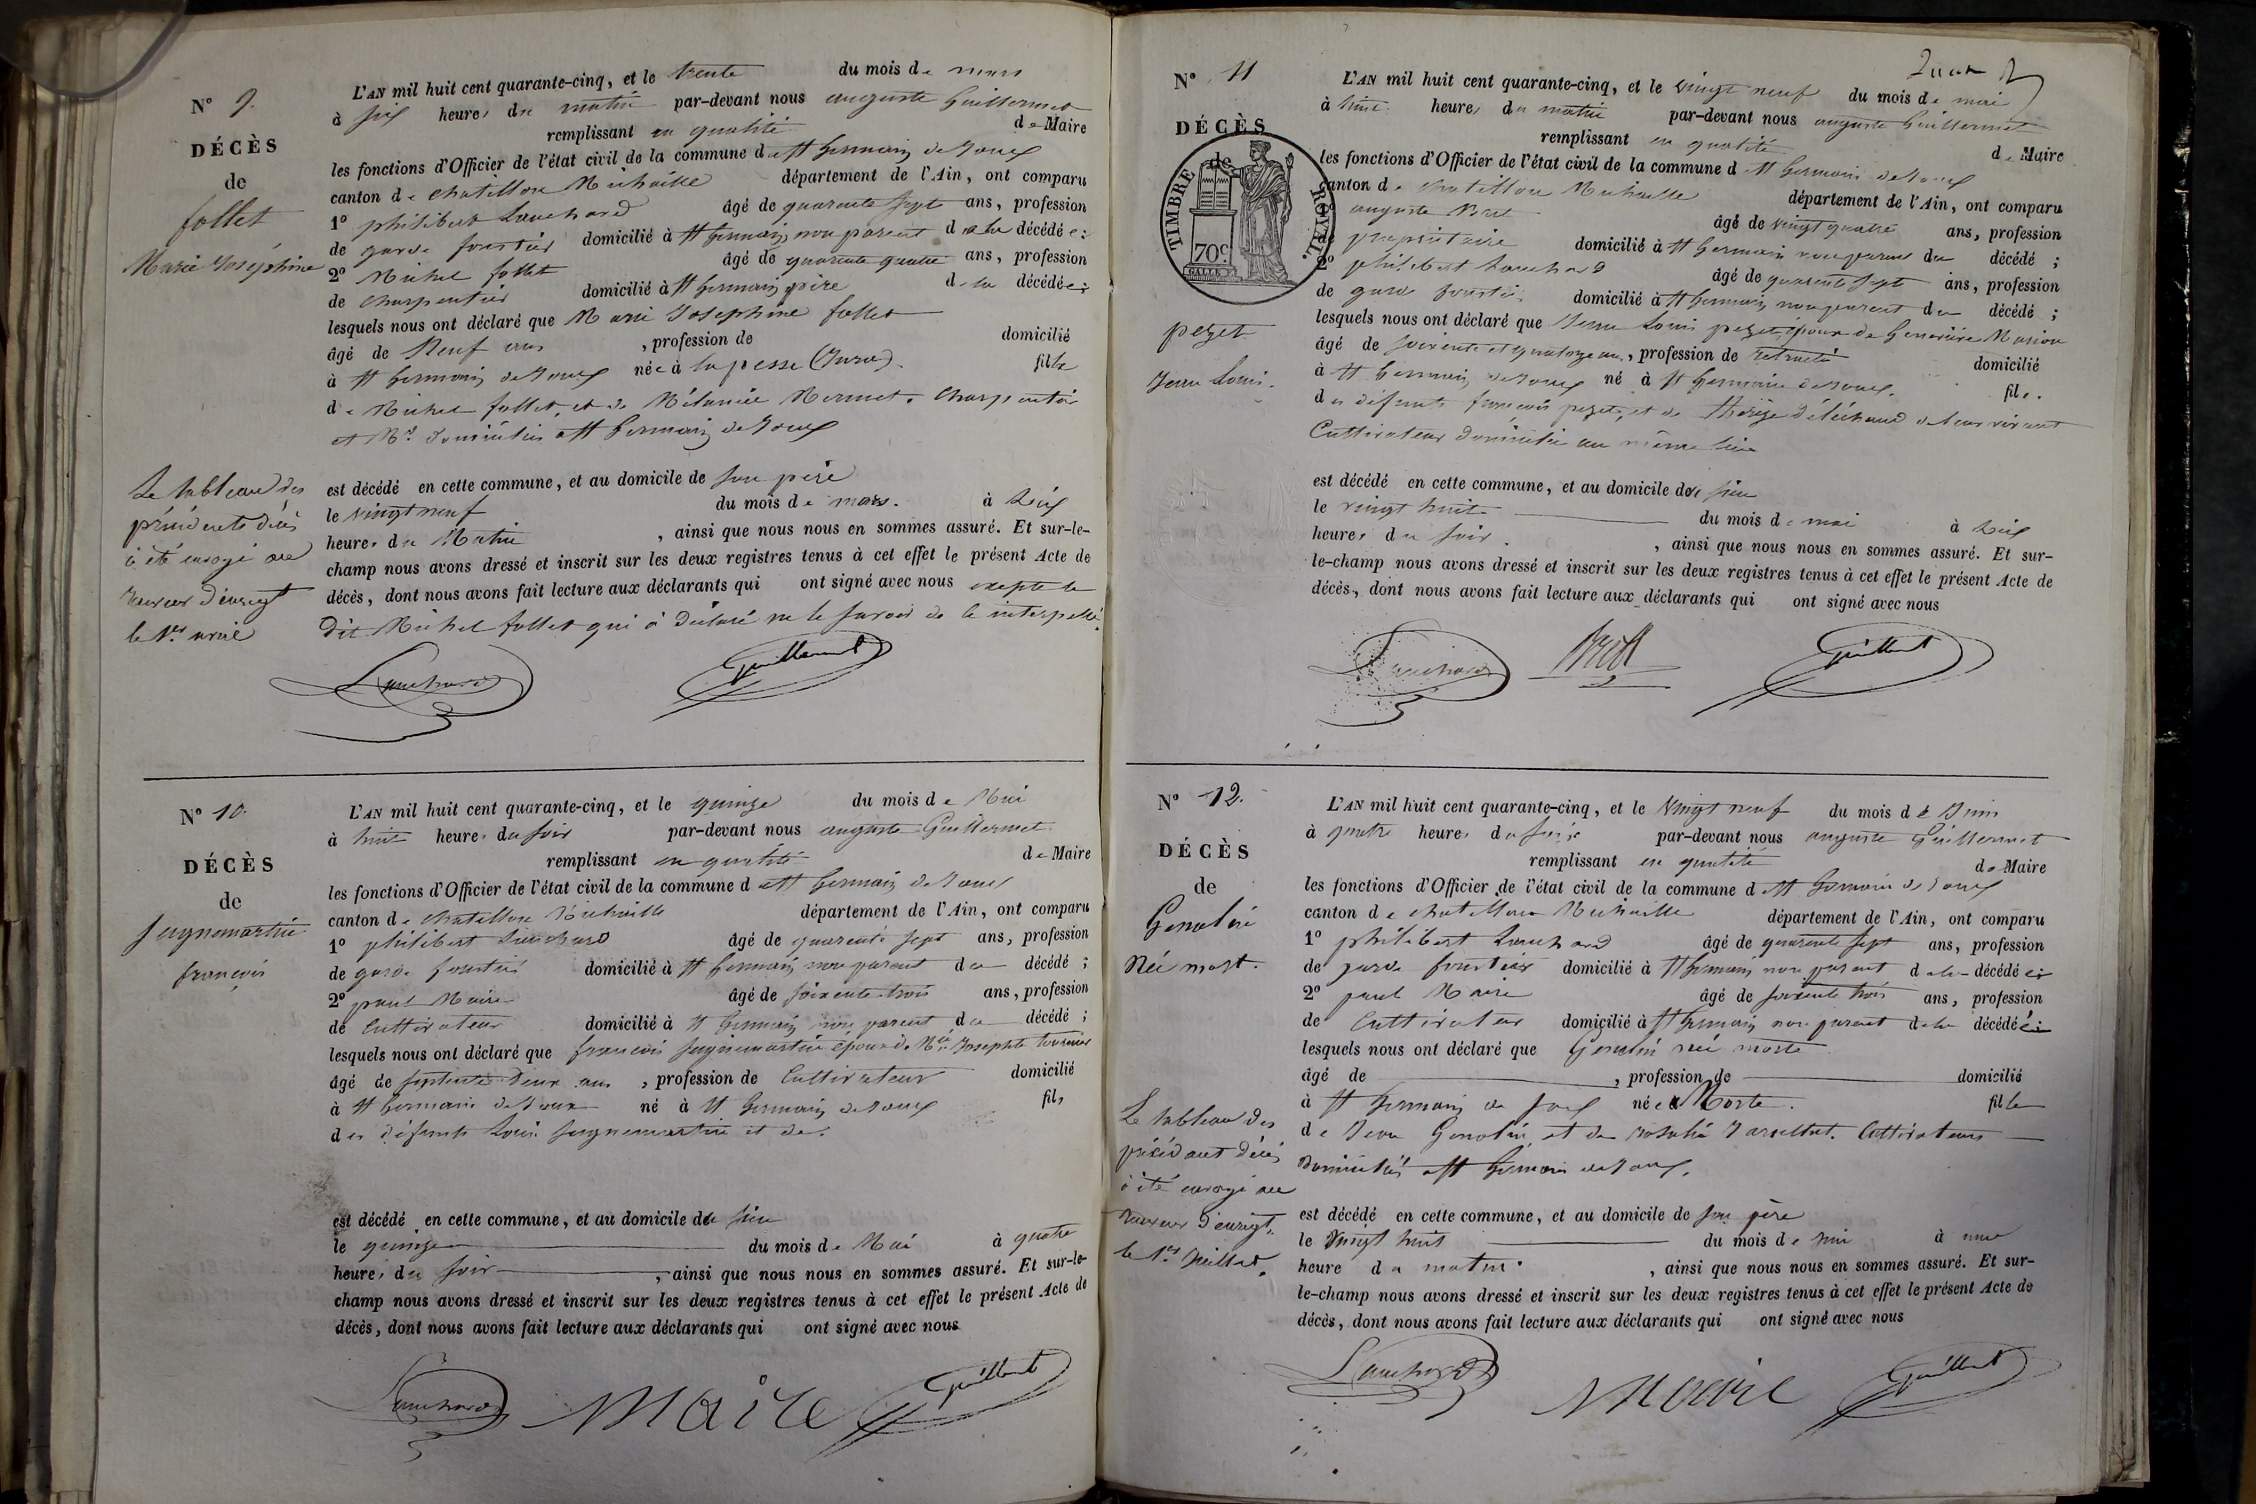 N° 9.
DÉCÈS
de
follet
Marie Joséphine
L'AN mil huit cent quarante-cinq, et le trente du mois de mars
à six heures du matin par-devant nous auguste Guillermet
remplissant en qualité de Maire
les fonctions d'Officier de l'état civil de la commune de St Germain de Joux
canton de chatillon Michaille département de l'Ain, ont comparu
1° philibert Lanchard âgé de quarente sept ans, profession
de garde forestier domicilié à St Germain non parent de la décédée;
2° Michel follet âgé de quarente quatre ans, profession
de charpentier domicilié à St Germain père de la décédée;
lesquels nous ont déclaré que Marie Joséphine follet
âgé de Neuf ans, profession de domicilié
à St Germain de Joux née à la pesse (Jura). fille
de Michel follet, et de Mélanie Mermet. charpentier
et Mre domiciliés à St Germain de Joux
Le tableau des
précédents décès
à été envoyé au
receveur d'enregt
le 1er avril
est décédé en cette commune, et au domicile de son père
le vingt neuf du mois de mars. à dix
heures du Matin, ainsi que nous nous en sommes assuré. Et sur-le-
champ nous avons dressé et inscrit sur les deux registres tenus à cet effet le présent Acte de
décès, dont nous avons fait lecture aux déclarants qui ont signé avec nous excepté le
dit Michel follet qui à déclaré ne le savoir de ce interpellé.
Lanchard Guillermet
N° 10.
DÉCÈS
de
Jugnemartin
françois
L'AN mil huit cent quarante-cinq, et le quinze du mois de Mai
à huit heures du soir par-devant nous auguste Guillermet
remplissant en qualité de Maire
les fonctions d'Officier de l'état civil de la commune de St Germain de Joux
canton de chatillon Michaille département de l'Ain, ont comparu
1° philibert Lanchard âgé de quarente sept ans, profession
de garde forestier domicilié à St Germain non parent du décédé;
2° paul Maire âgé de soixente trois ans, profession
de Cultivateur domicilié à St Germain non parent du décédé;
lesquels nous ont déclaré que françois Jugnemartin époux de Mie Josephte
âgé de septente deux ans, profession de Cultivateur domicilié
à St Germain de Joux né à St Germain de Joux fils
des défunts Louis Jugnemartin et de.
est décédé en cette commune, et au domicile du sien
le quinze du mois de Mai à quatre
heures du soir, ainsi que nous nous en sommes assuré. Et sur-le-
champ nous avons dressé et inscrit sur les deux registres tenus à cet effet le présent Acte de
décès, dont nous avons fait lecture aux déclarants qui ont signé avec nous
Lanchard Maire Guillermet
N° 11
DÉCÈS
de
TIMBRE ROYAL.
70c.
pezet
Jean Louis.
L'AN mil huit cent quarante-cinq, et le vingt neuf du mois de mai
à huit heures du matin par-devant nous auguste Guillermet
remplissant en qualité de Maire
les fonctions d'Officier de l'état civil de la commune de St Germain de Joux
canton de chatillon Michaille département de l'Ain, ont comparu
auguste âgé de vingt quatre ans, profession
propriétaire domicilié à St Germain non parent du décédé;
2° philibert Lanchard âgé de quarente sept ans, profession
de garde forestier domicilié à St Germain non parent du décédé;
lesquels nous ont déclaré que Jean Louis pezet époux de
âgé de soixente et quatorze ans, profession de retraité domicilié
à St Germain de Joux né à St Germain de Joux. fils.
des défunts françois pezet, et de de leur vivant
Cultivateur domiciliés au même lieu
est décédé en cette commune, et au domicile du sien
le vingt huit du mois de mai à dix
heures du soir., ainsi que nous nous en sommes assuré. Et sur-
le-champ nous avons dressé et inscrit sur les deux registres tenus à cet effet le présent Acte de
décès, dont nous avons fait lecture aux déclarants qui ont signé avec nous
Lanchard Guillermet
N° 12.
DÉCÈS
de
Genolin
Née mort.
L'AN mil huit cent quarante-cinq, et le Vingt neuf du mois de Juin
à quatre heures du soir par-devant nous auguste Guillermet
remplissant en qualité de Maire
les fonctions d'Officier de l'état civil de la commune de St Germain de Joux
canton de chatillon Michaille département de l'Ain, ont comparu
1° philibert Lanchard âgé de quarente sept ans, profession
de garde forestier domicilié à St Germain non parent de la décédée;
2° paul Maire âgé de soixente trois ans, profession
de Cultivateur domicilié à St Germain non parent de la décédée;
lesquels nous ont déclaré que Genolin née morte
âgé de, profession de domicilié
à St Germain de Joux née Morte. fille
de Jean Genolin, et de rosalie. Cultivateurs
Domiciliés à St Germain de Joux.
Le tableau des
précédent décès
à été envoyé au
receveur d'enregt.
le 1er Juillet.
est décédé en cette commune, et au domicile de son père
le Vingt huit du mois de Juin à une
heure du matin., ainsi que nous nous en sommes assuré. Et sur-
le-champ nous avons dressé et inscrit sur les deux registres tenus à cet effet le présent Acte de
décès, dont nous avons fait lecture aux déclarants qui ont signé avec nous
Lanchard Maire Guillermet